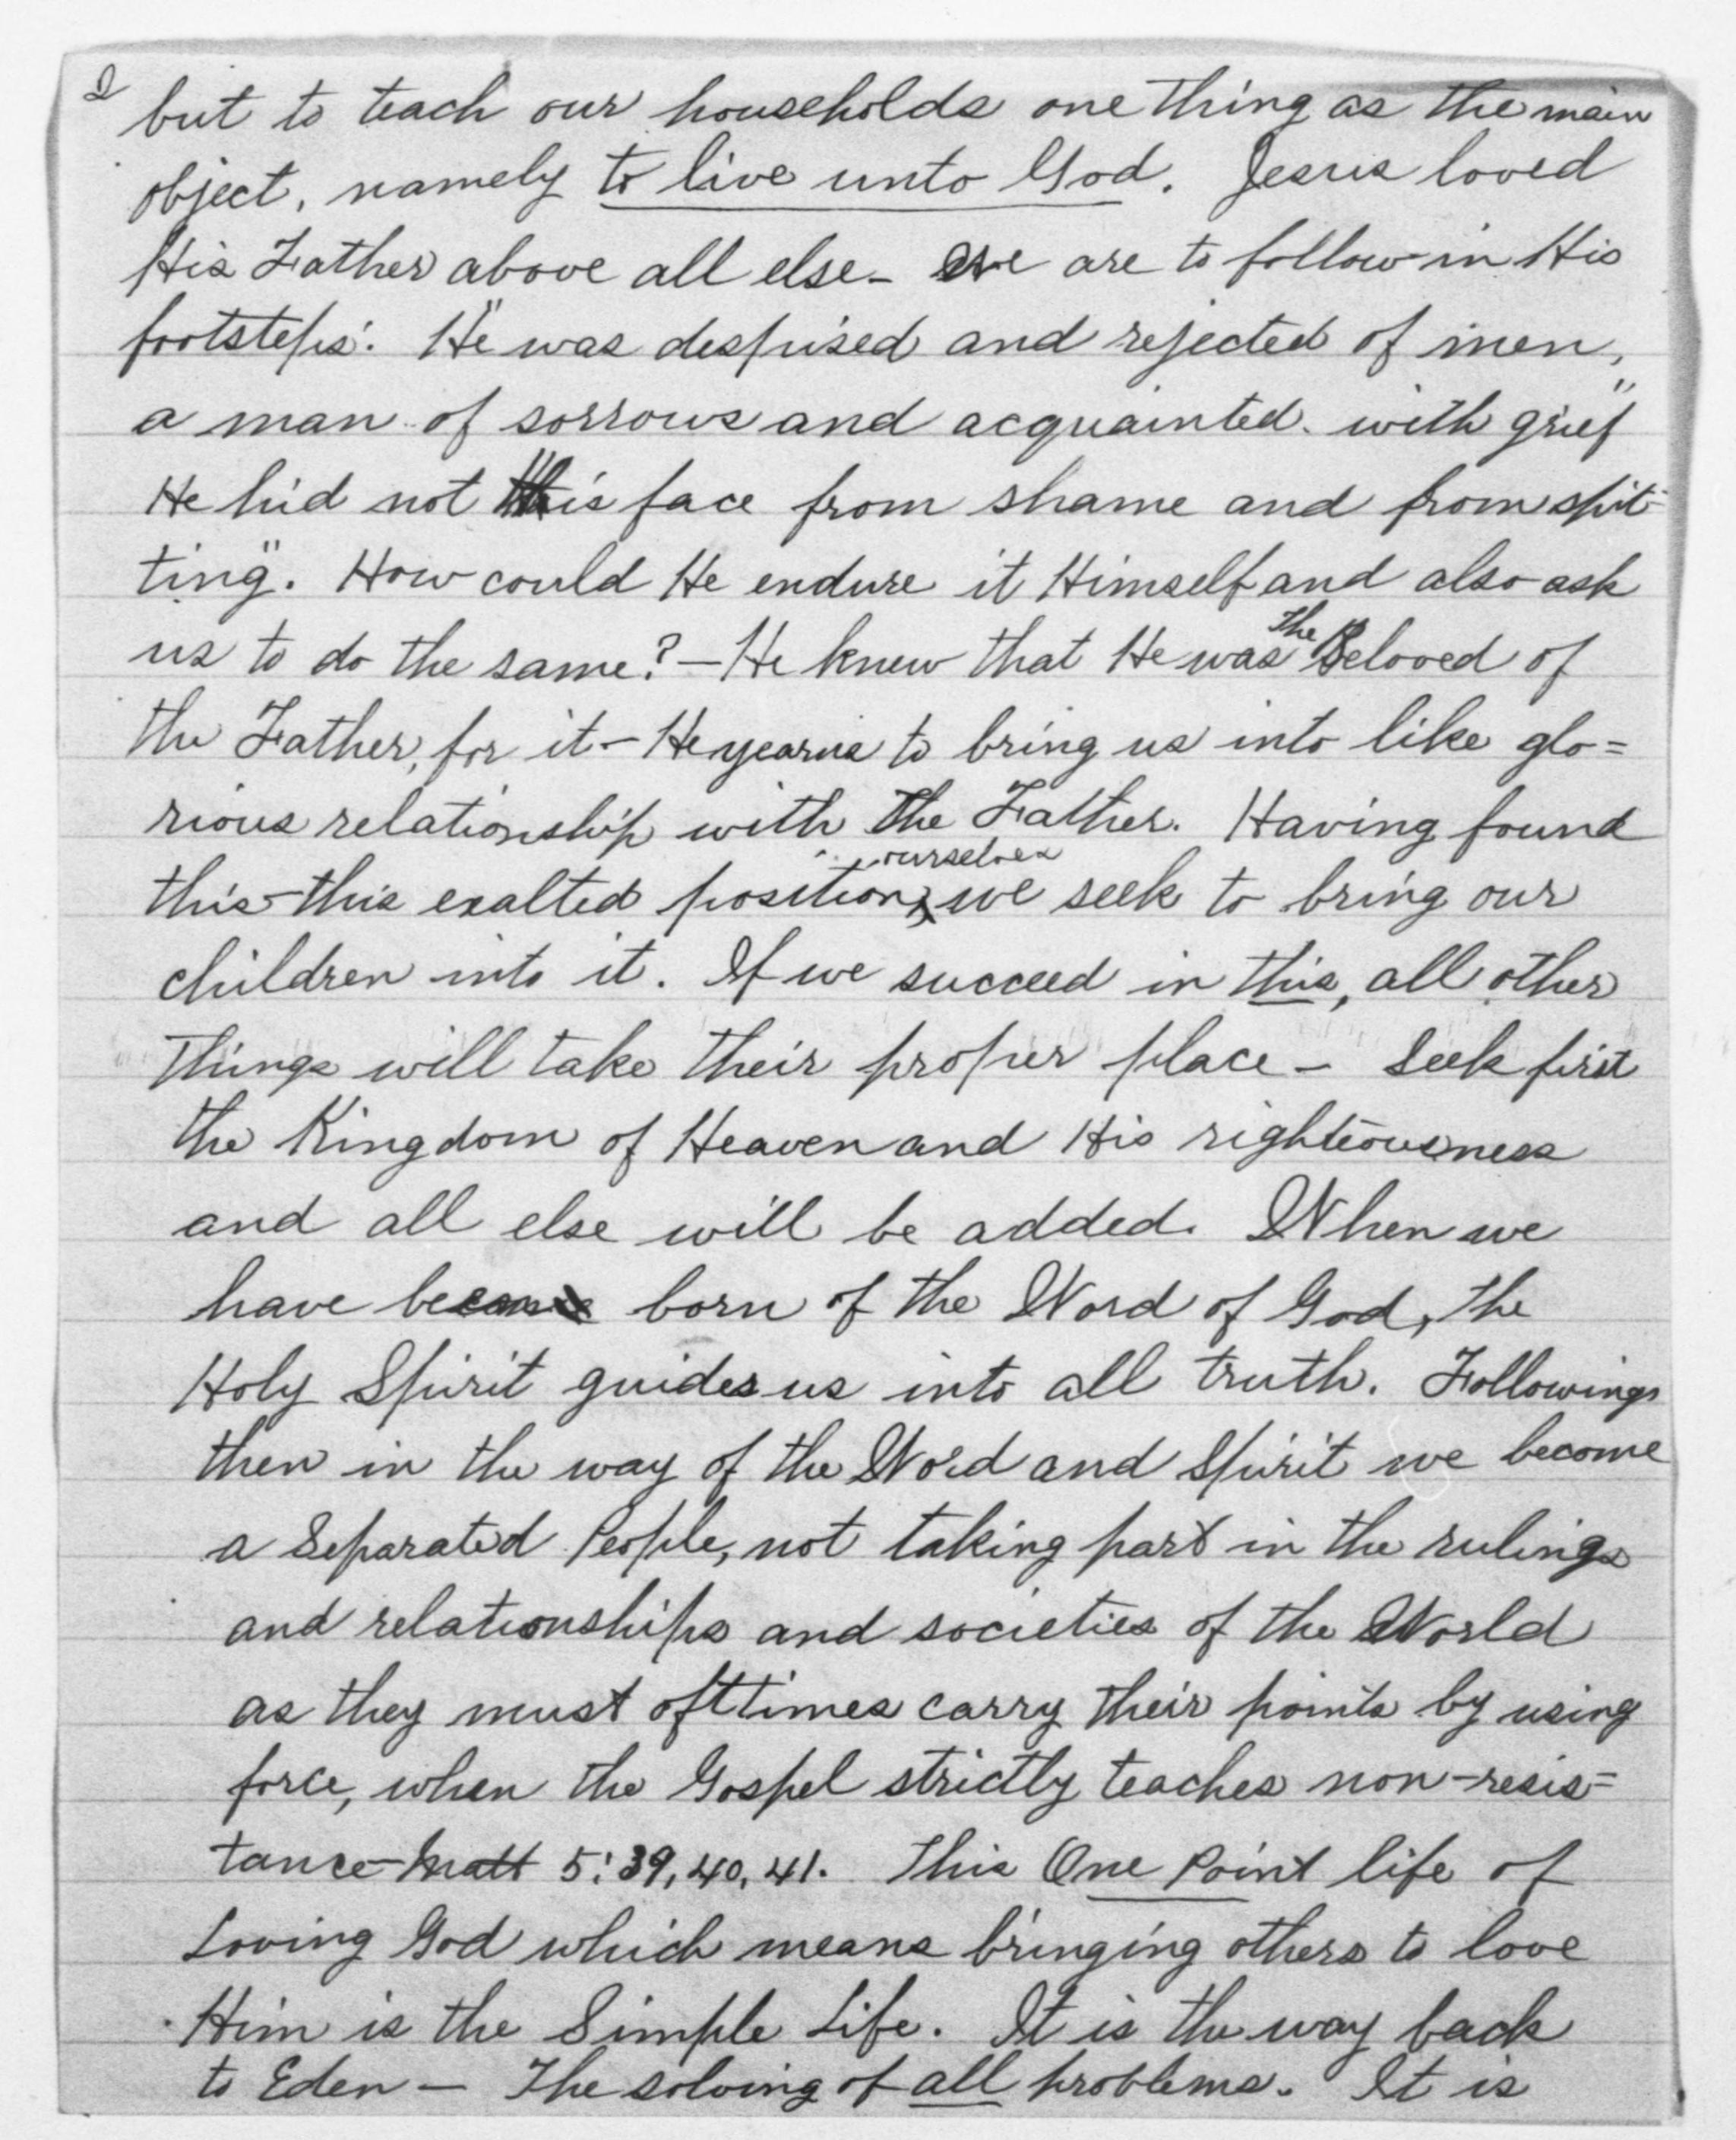 2
but to teach our households one thing as the main
object, namely to live unto God. Jesus loved
His Father above all else - we are to follow in His
footsteps. "He was despised and rejected of men,
a man of sorrows and acquainted with grief"
He hid not "his face from shame and from spit-
ting". How could He endure it Himself and also ask
us to do the same? - He knew that He was The Beloved of
the Father, for it - He yearns to bring us into like glo=
rious relationship with the Father. Having found
this - this exalted position, ourselves we seek to bring our
children into it. If we succeed in this, all other
things will take their proper place - Seek first
the Kingdom of Heaven and His righteousness
and all else will be added. When we
have be born of the Word of God, the
Holy Spirit guides us into all truth. Following
then in the way of the Word and Spirit we become
a Separated People, not taking part in the rulings
and relationships and societies of the World
as they must ofttimes carry their points by using
force, when the Gospel strictly teaches non-resis=
tance - Matt 5:39, 40, 41. This One Point life of
Loving God which means bringing others to love
Him is the Simple Life. It is the way back
to Eden - The solving of all problems. It is